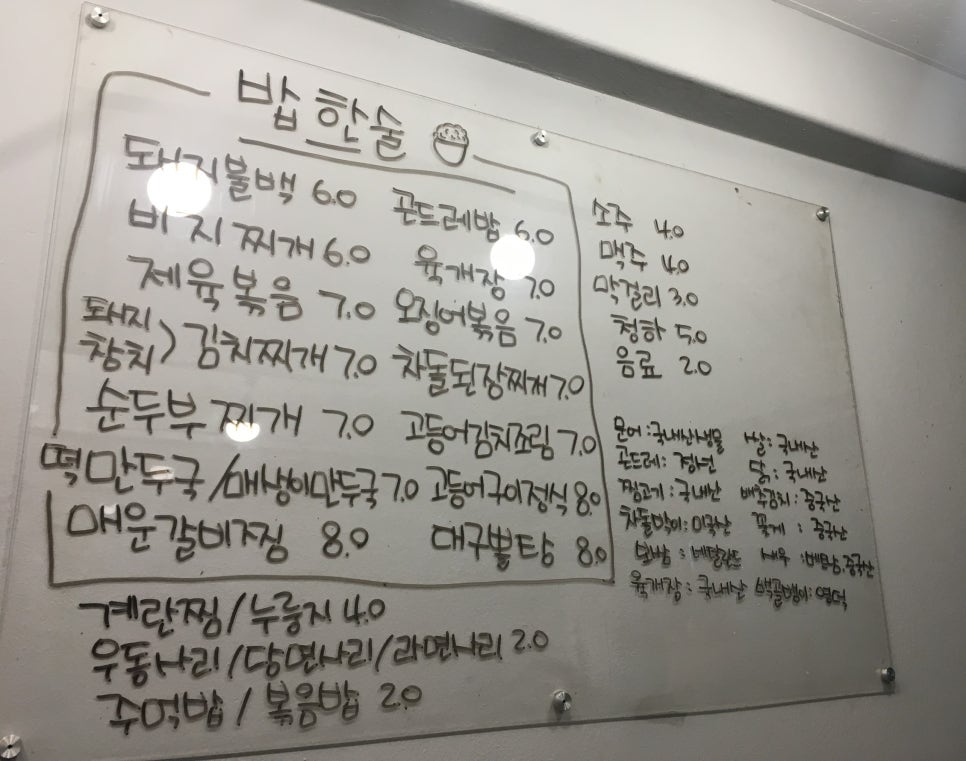 밥 한술
돼지불백 6.0
비지찌개 6.0
제육볶음 7.0
돼지
참치 > 김치찌개 7.0
순두부 찌개 7.0
떡만두국/매생이만두국 7.0
매운갈비찜 8.0
곤드레밥 6.0
육개장 7.0
오징어볶음 7.0
차돌된장찌개 7.0
고등어김치조림 7.0
고등어구이정식 8.0
대구뽈탕 8.0
계란찜/누룽지 4.0
우동사리/당면사리/라면사리 2.0
주먹밥/볶음밥 2.0
소주 4.0
맥주 4.0
막걸리 3.0
청하 5.0
음료 2.0
문어:국내산생물
곤드레: 정선
찜고기:국내산
차돌막이:미국산
보쌈:네덜란드
육개장:국내산
쌀:국내산
닭:국내산
배추김치:중국산
꽃게:중국산
새우:베트남.중국산
백골뱅이:영덕